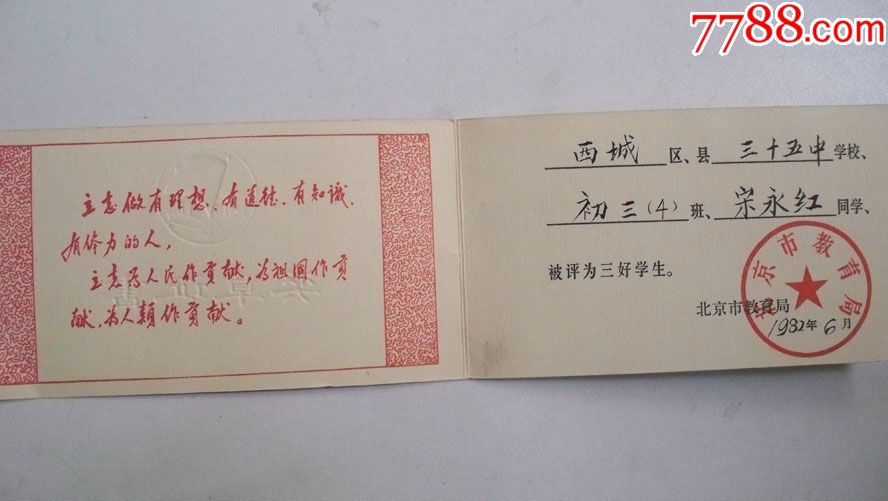 7788.com
立志做有理想、有道德、有知識、
有体力的人，
立志为人民作貢献，为祖國作貢
献，为人類作貢献。
西城区、县 三十五中学校、
初三（4）班、宋永红同学、
被评为三好学生。
北京市教育局
1982年6月
北京市教育局